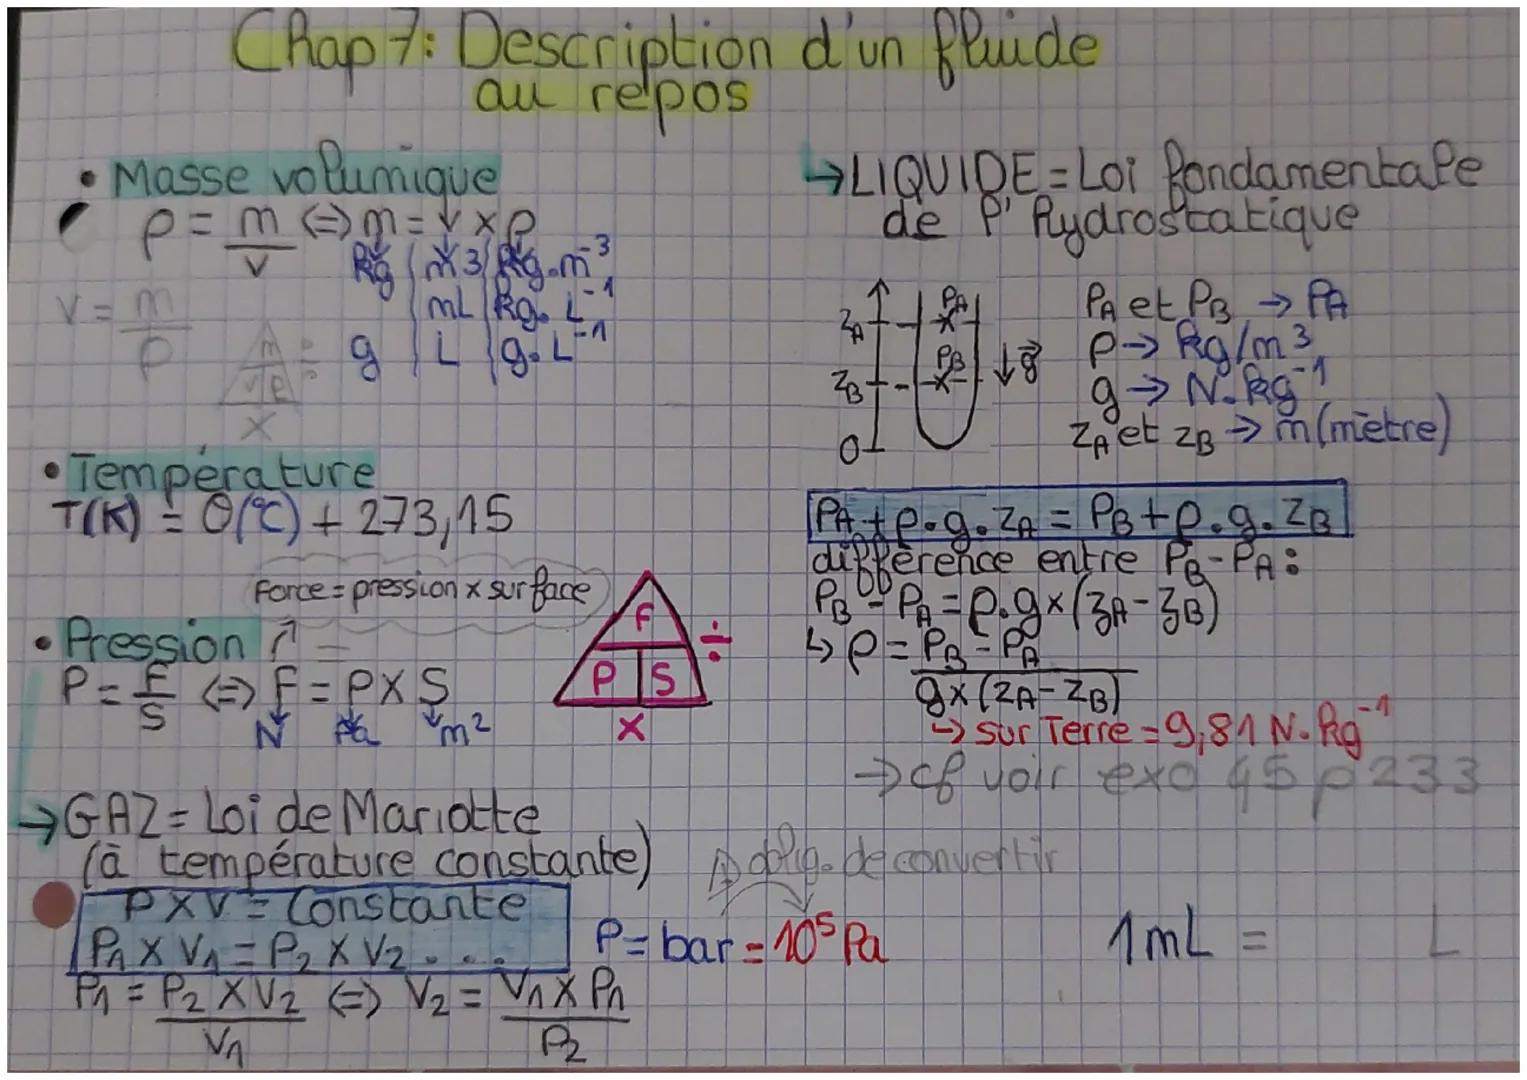 Chap 7: Description d'un fluide
au repos
• Masse volumique
ρ = m/V ⇔ m = V × ρ
kg | m^3 | kg.m^-3
mL | kg.L^-1
g | L | g.L^-1
V = m/ρ
m ÷
V ρ
×
• Température
T(K) = θ(°C) + 273,15
Force = pression x surface
• Pression
P = F/S ⇔ F = P × S
N Pa m²
F ÷
P S
×
→ GAZ = Loi de Mariotte
(à température constante)
P × V = Constante
P1 × V1 = P2 × V2 ...
P1 = P2 × V2/V1 ⇔ V2 = V1 × P1/P2
→ LIQUIDE = Loi fondamentale
de l'hydrostatique
zA PA
zB PB ↓ g
0
PA et PB → PA
ρ → kg/m³
g → N.kg^-1
zA et zB → m (mètre)
PA + ρ.g.zA = PB + ρ.g.zB
différence entre PB - PA :
PB - PA = ρ.g × (zA - zB)
↳ ρ = PB - PA/g × (zA - zB)
↳ sur Terre = 9,81 N.kg^-1
→ cf voir exo 45 p 233
⚠ oblig. de convertir
P = bar = 10^5 Pa
1 mL = L